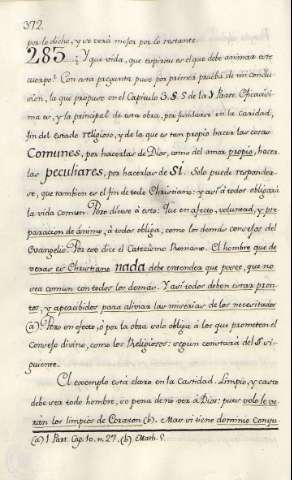 372.
por lo dicho, y se verà mejor por lo restante.
285. ¿Y que vida, que espiritu es el que debe animar este
cuerpo? Con esta pregunta puse por primera prueba de mi conclu-
sion, la que propuse en el Capitulo 3. §. 5 de la 1 Parte. Eficacisi-
ma es, y la principal de esta obra, por fundarse en la Caridad,
fin del estado religioso, y de la que es tan propio hacer las cosas
Comunes, por hacerlas de Dios, como del amor propio, hacer
las peculiares, por hacerlas de SI. Solo puede responder-
se, que tambien es el fin de todo Christiano: y asi à todos obligarà
la vida comun. Pero dirase à esto: Que en afecto, voluntad, y pre-
paracion de ànimo, à todos obliga, como los demàs consejos del
Evangelio. Por eso dice el Catecismo Romano. El hombre que de
veras es Christiano nada debe entender que posee, que no
sea comun con todos los demàs. Y asi todos deben estar pron-
tos, y apercibidos para aliviar las miserias de los necesitados
(a). Pero en efecto, ò por la obra solo obliga à los que prometen el
Consejo divino, como los Religiosos: segun constarà del §. si-
guiente.
El exemplo està claro en la Castidad. Limpio, y casto
debe ser todo hombre, so pena de no ver à Dios: pues solo le ve-
ràn los limpios de Corazon (b). Mas si tiene dominio conyu
(a) 1. Part. Cap. 10. n. 27. (b) Math. 5.